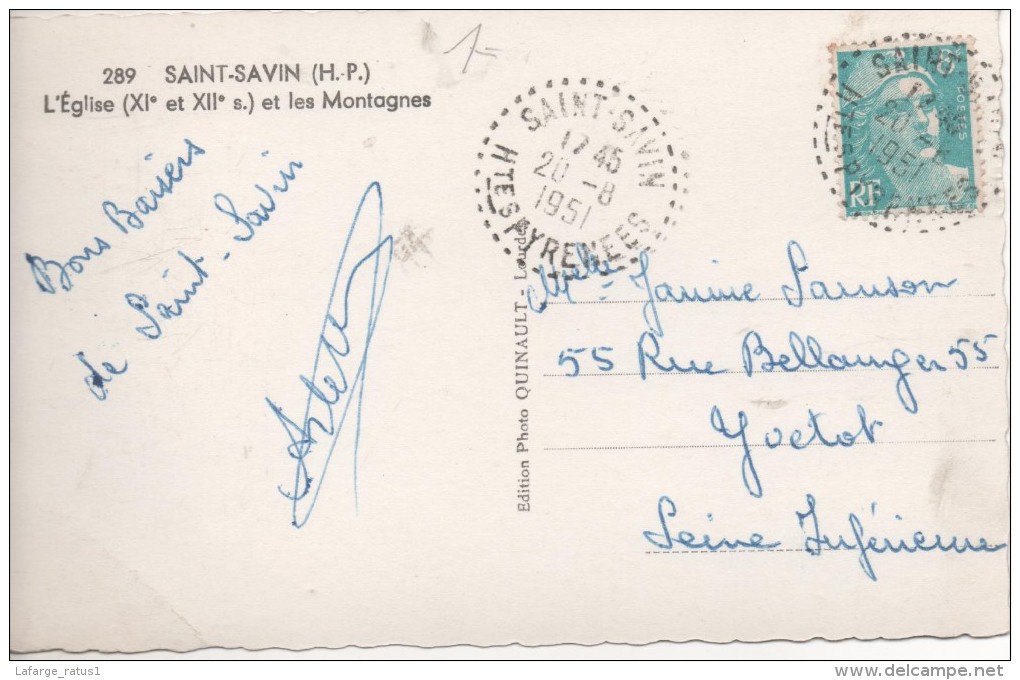 289 SAINT-SAVIN (H.-P.)
L'Église (XIe et XIIe s.) et les Montagnes
Bons Baisers
de Saint-Savin
1-
SAINT-SAVIN
17 45
20 -8
1951
HTES PYRENEES
POSTES
RF
SAINT-SAVIN
20
1951
Edition Photo QUINAULT - Lourdes
Melle Janine
55 Rue Bellanger 55
Yvetot
Seine Inférieure
Lafarge_ratus1
www.delcampe.net